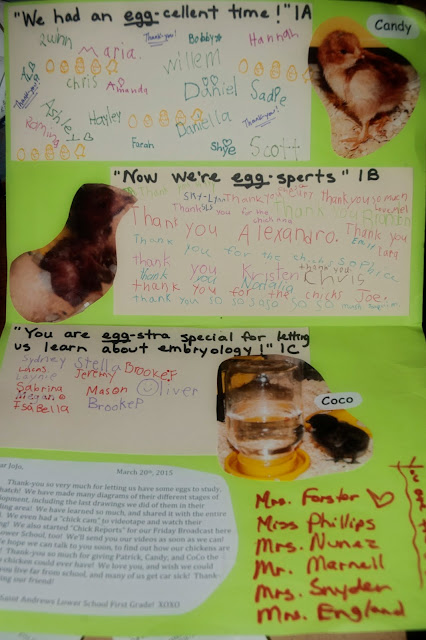 "We had an egg-cellent time!" 1A
Candy
Thank you!
Bobby
Hannah
Maria.
willem
chris
Amanda
Daniel
Sadie
Thank you!
Ashley B
Hayley
Daniella
Thank you!
Farah
Scott
"Now we're egg-sperts" 1B
Thank you
Thank you so much
Thank you for the
Thank you Alexandro. Thank you
Thank you for the chicks Sophia
thank you Kristen thank you Chris
thank you Natalia
thank you for the chicks Joe.
thank you so so so so so so much
"You are egg-stra special for letting
us learn about embryology!" 1C
Sydney Stella Brooke F
Lucas Jeremy
Sabrina Mason Oliver
Megan
Isabella Brooke P
Coco
March 20th, 2015
Thank-you so very much for letting us have some eggs to study,
hatch! We have made many diagrams of their different stages of
including the last drawings we did of them in their
area! We have learned so much, and shared it with the entire
We even had a "chick cam" to videotape and watch their
We also started "Chick Reports" for our Friday Broadcast here
Lower School, too! We'll send you our videos as soon as we can!
hope we can talk to you soon, to find out how our chickens are
Thank-you so much for giving Patrick, Candy, and CoCo the
chicken could ever have! We love you, and wish we could
you live far from school, and many of us get car sick! Thank-
being our friend!
Saint Andrews Lower School First Grade! XOXO
Mrs. Forster
Miss Phillips
Mrs. Nunez
Mr. Marnell
Mrs. Snyder
Mrs. England